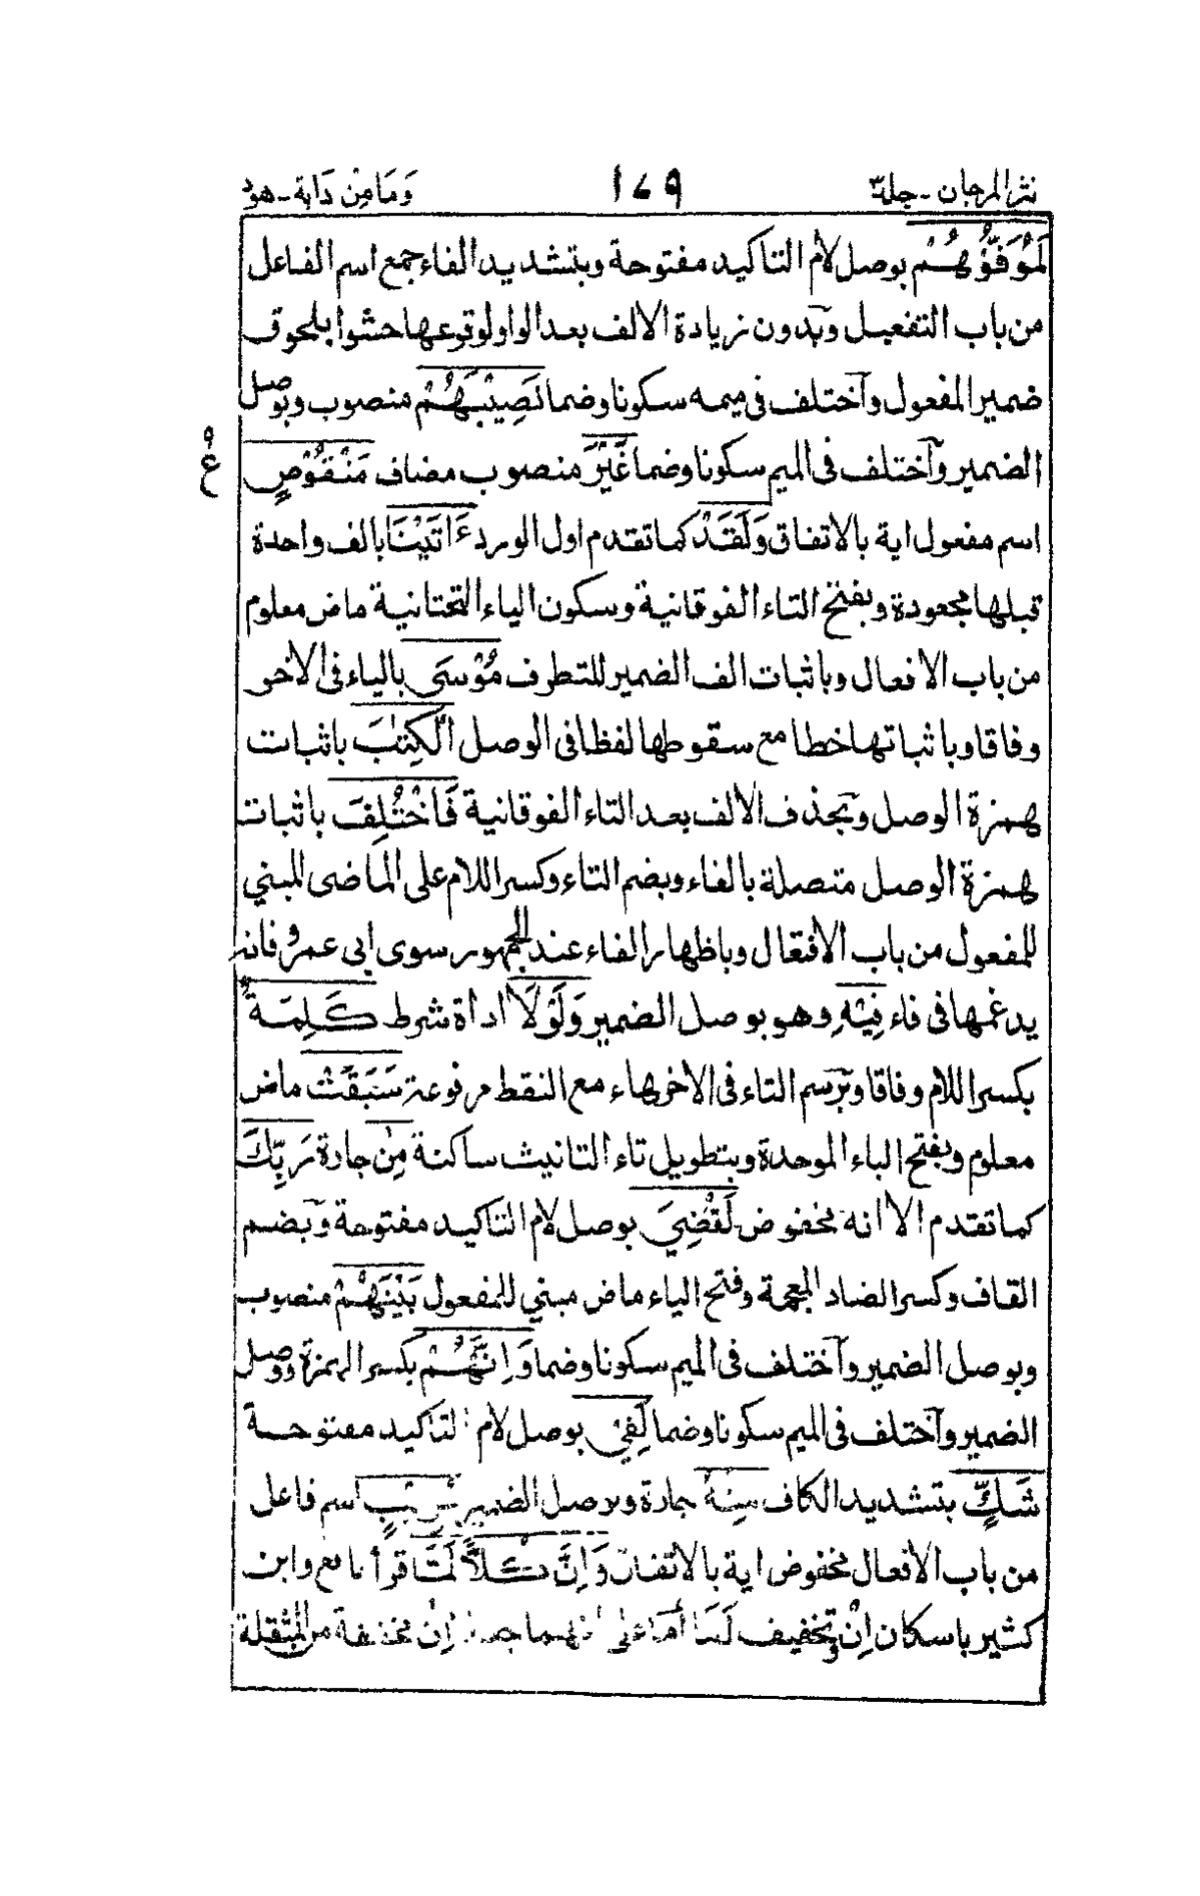 نثر المرجان - جلد ٣ ١٧٩ وَمَا مِنْ دَابة - هود
لَمُوَفُّوْهُمْ بوصل لام التاكيد مفتوحة وبتشديد الفاء جمع اسم الفاعل
من باب التفعيل وبدون زيادة الالف بعد الواو لوقوعها حشوا بلحوق
ضمير المفعول واختلف فى ميمه سكونا وضما نَصِيْبَهُمْ منصوب وبوصل
الضمير واختلف فى الميم سكونا وضما غَيْرَ منصوب مضاف مَنْقُوْصٍ
ع
اسم مفعول اية بالاتفاق وَلَقَدْ كما تقدم اول الورد ءَاتَيْنَا بالف واحدة
قبلها مجعودة وبفتح التاء الفوقانية وسكون الياء التحتانية ماض معلوم
من باب الافعال وباثبات الف الضمير للتطرف مُوْسَى بالياء فى الاخر
وفاقا وباثباتها خطا مع سقوطها لفظا فى الوصل الْكِتٰبَ باثبات
همزة الوصل وبحذف الالف بعد التاء الفوقانية فَاخْتُلِفَ باثبات
همزة الوصل متصلة بالفاء وبضم التاء وكسر اللام على الماضى المبني
للمفعول من باب الافتعال وباظهار الفاء عند الجمهور سوى ابى عمرو فانه
يدغمها فى فاء فِيْهِ وهو بوصل الضمير وَلَوْلَا اداة شرط كَلِمَةٌ
بكسر اللام وفاقا وبرسم التاء فى الاخر هاء مع النقط مرفوعة سَبَقَتْ ماض
معلوم وبفتح الباء الموحدة وبتطويل تاء التانيث ساكنة مِنْ جارة رَبِّكَ
كما تقدم الا انه مخفوض لَقُضِيَ بوصل لام التاكيد مفتوحة وبضم
القاف وكسر الضاد المعجمة وفتح الياء ماض مبني للمفعول بَيْنَهُمْ منصوب
وبوصل الضمير واختلف فى الميم سكونا وضما وَاِنَّهُمْ بكسر الهمزة ووصل
الضمير واختلف فى الميم سكونا وضما لَفِيْ بوصل لام التاكيد مفتوحة
شَكٍّ بتشديد الكاف مِنْهُ جارة وبوصل الضمير مُرِيْبٍ اسم فاعل
من باب الافعال مخفوض اية بالاتفاق وَاِنَّ كُلًّا لَمَّا قرأ نافع وابن
كثير باسكان اِنْ وتخفيف لَمَا أما على اِنْ مخففة من المثقلة